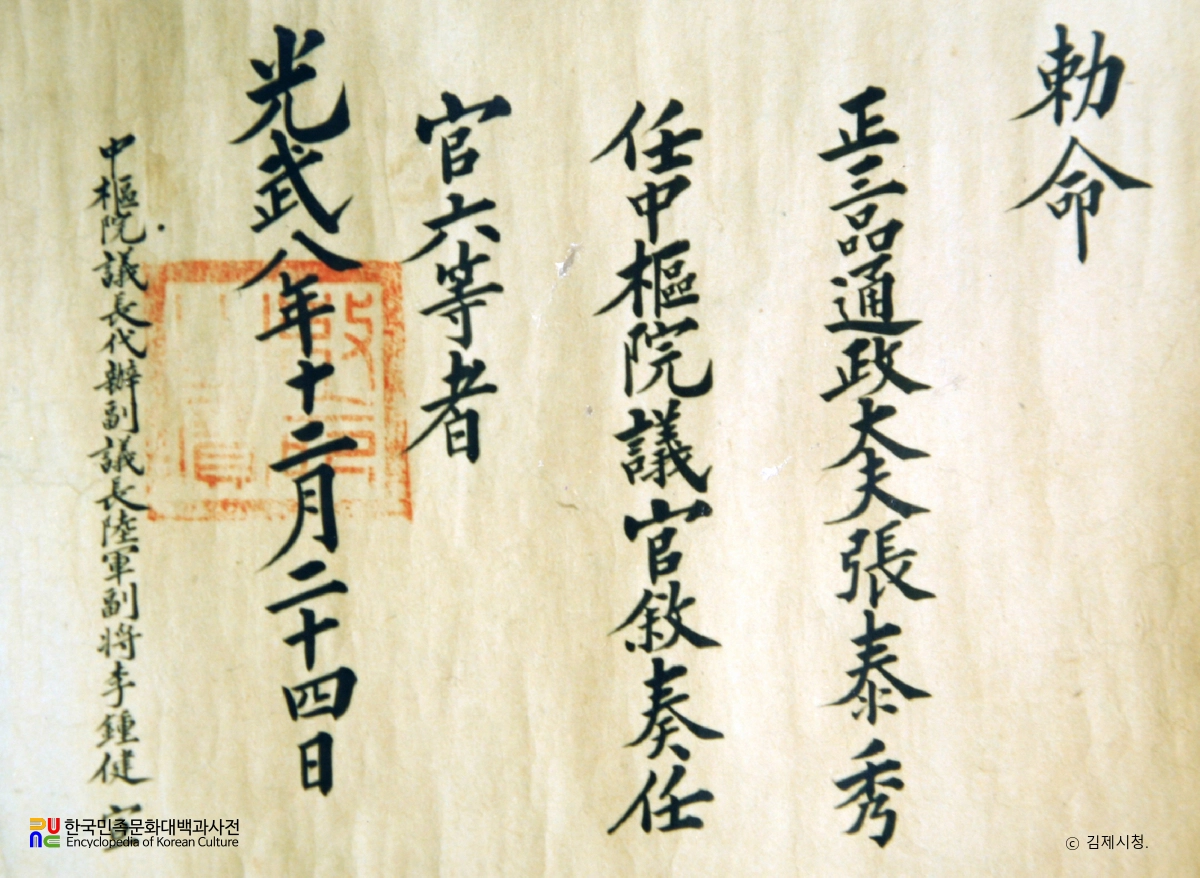 勅命
正三品通政大夫張泰秀
任中樞院議官敘奏任
官六等者
光武八年十二月二十四日
中樞院議長代辦副議長陸軍副將李鍾健 宣
한국민족문화대백과사전
Encyclopedia of Korean Culture
ⓒ 김제시청.